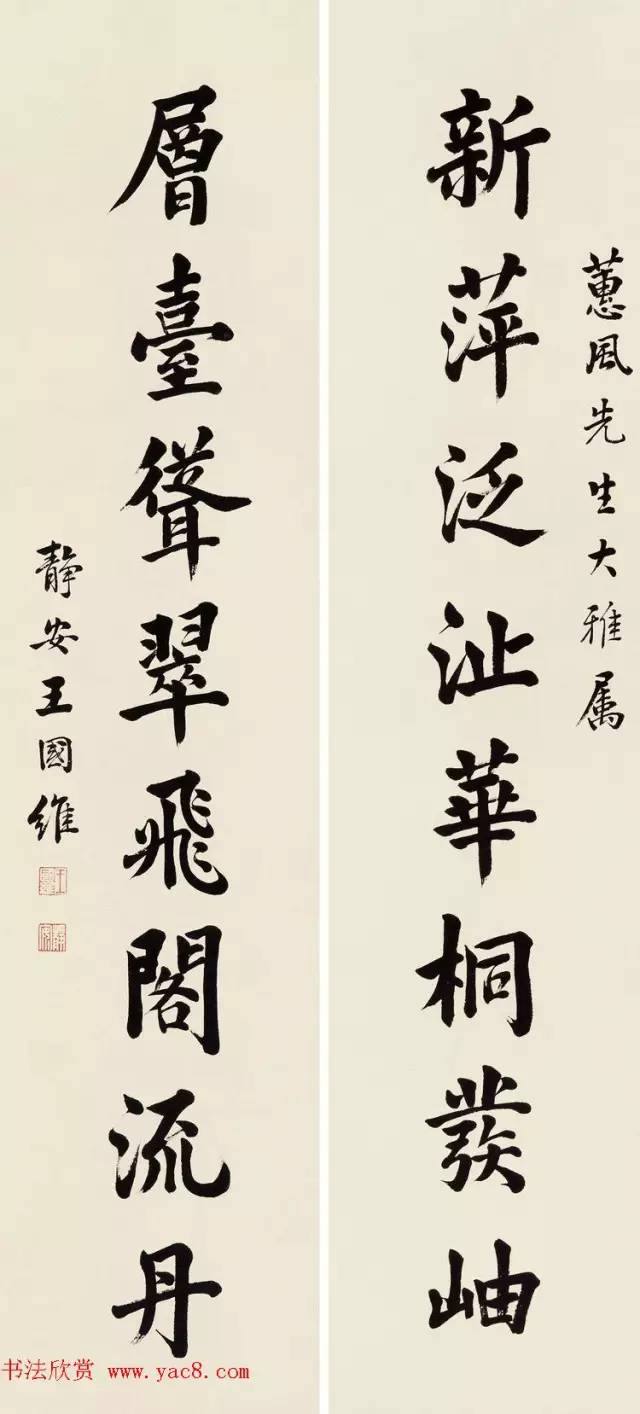 蕙風先生大雅属
新萍泛沚華桐發岫
層臺聳翠飛閣流丹
靜安王國維
书法欣赏 www.yac8.com